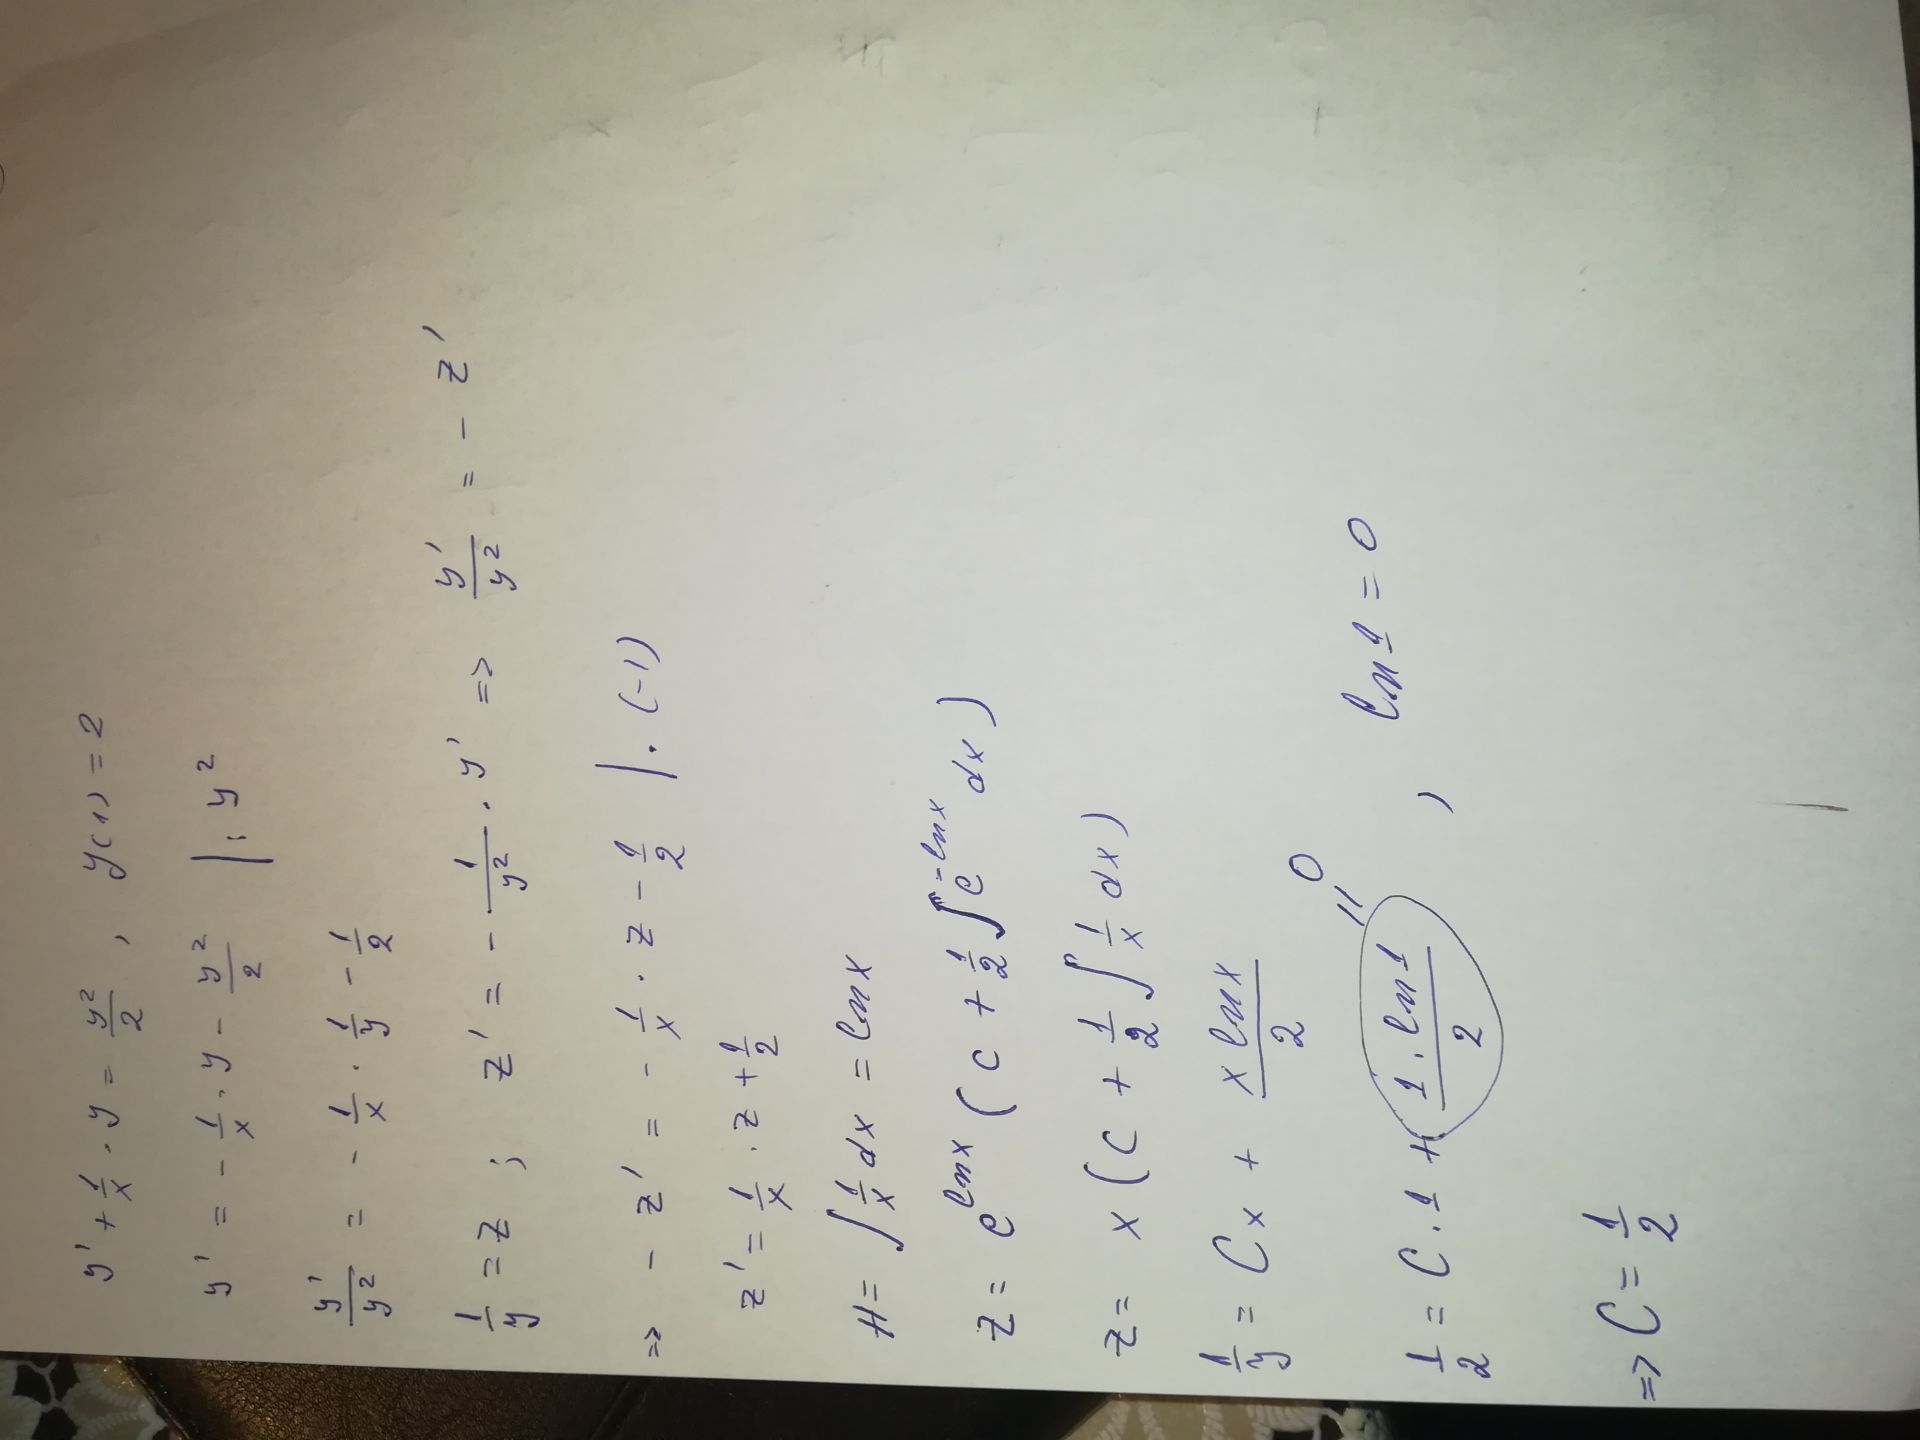 y' + 1/x · y = y²/2 , y(1) = 2
y' = - 1/x · y - y²/2 | : y²
y'/y² = - 1/x · 1/y - 1/2
1/y = z ; z' = - 1/y² · y' => y'/y² = - z'
=> - z' = - 1/x · z - 1/2 | · (-1)
z' = 1/x · z + 1/2
H = ∫ 1/x dx = ln x
z = e^(ln x) (c + 1/2 ∫ e^(-ln x) dx)
z = x (c + 1/2 ∫ 1/x dx)
1/y = Cx + (x ln x)/2
1/2 = C · 1 + (1 · ln 1)/2 = 0 , ln 1 = 0
=> C = 1/2